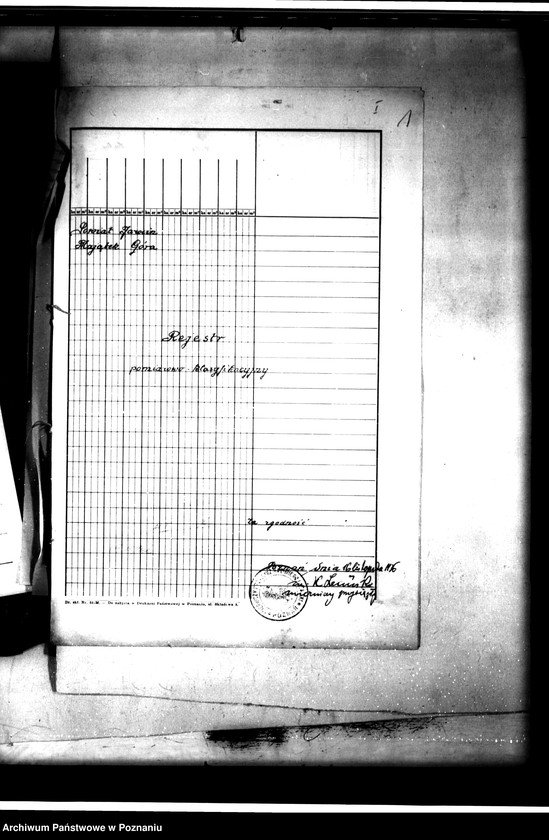 I 1
Powiat Jarocin
Majątek Góra
Rejestr
pomiarowo-klasyfikacyjny
Za zgodność
Poznań dnia listopada
mierniczy przysięgły
Do nabycia w Drukarni Państwowej w Poznaniu, ul.
Archiwum Państwowe w Poznaniu